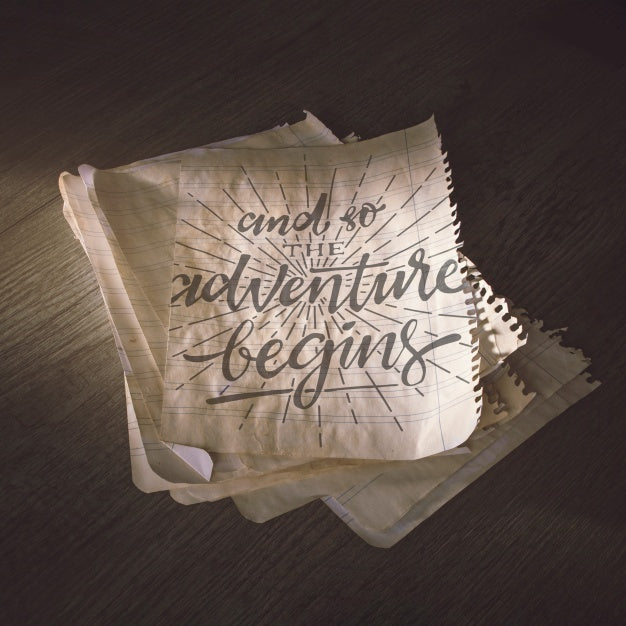 and so
THE
adventure
begins